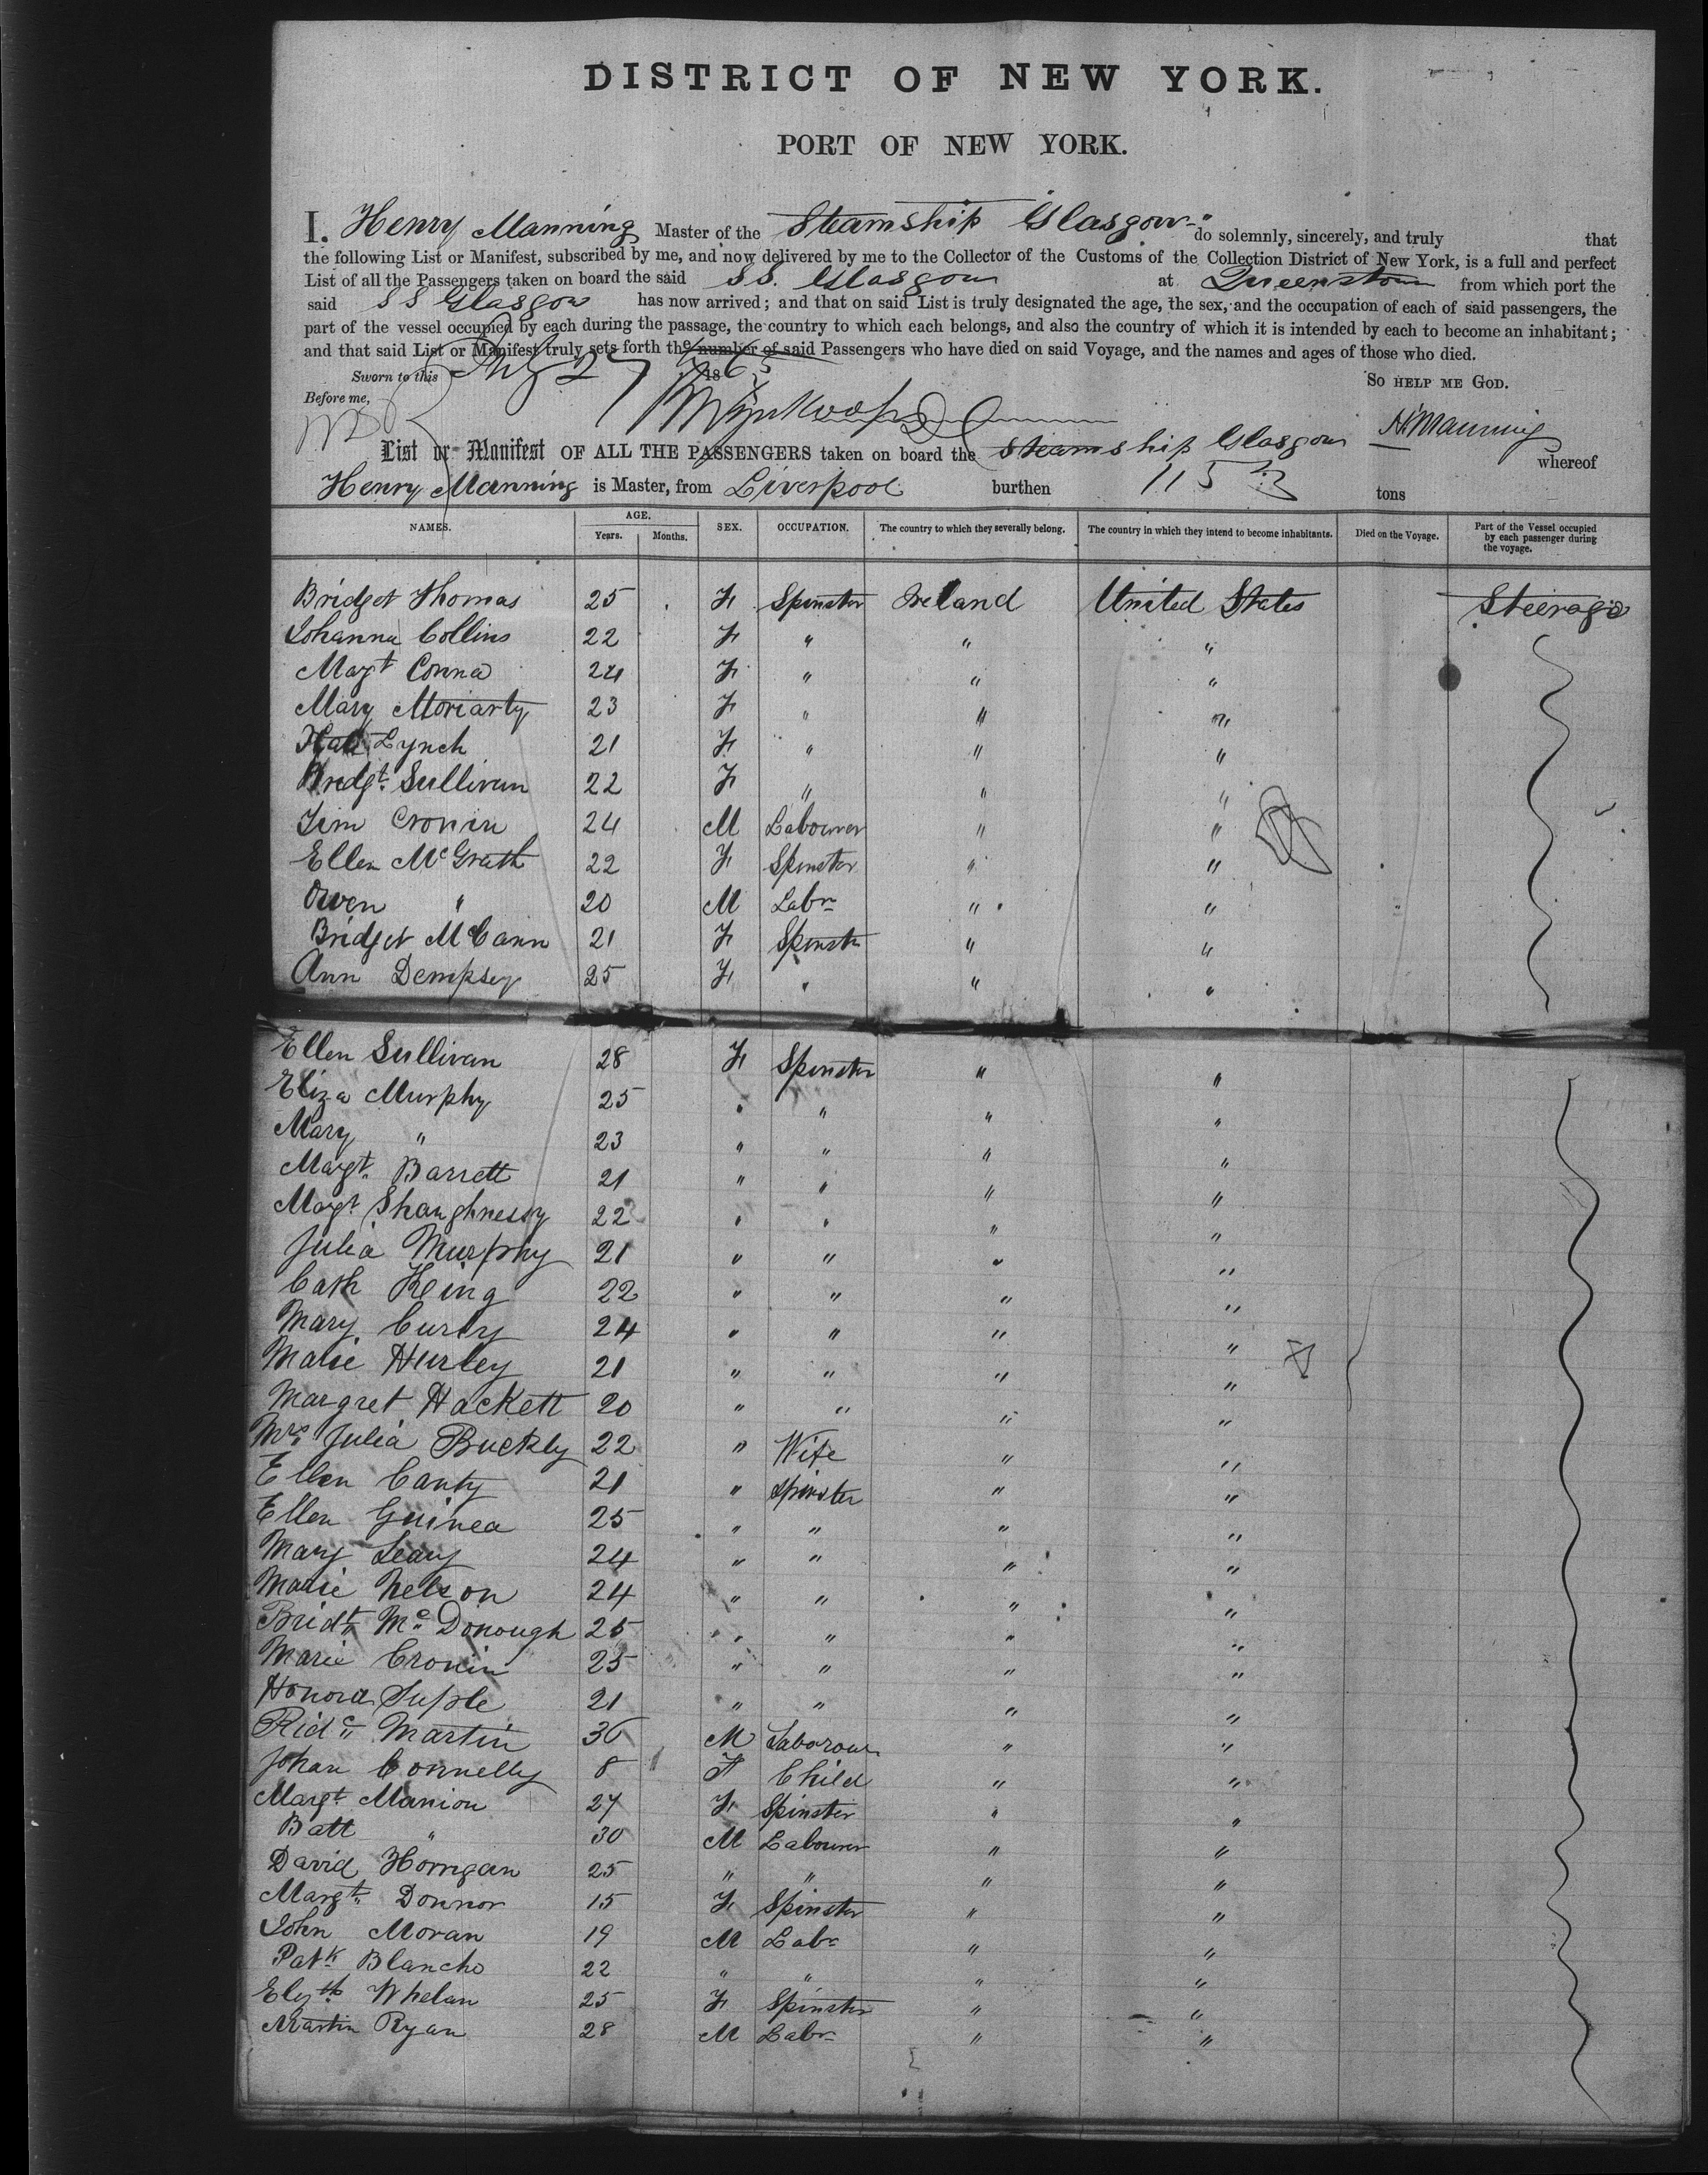 DISTRICT OF NEW YORK.
PORT OF NEW YORK.
I. Henry Manning Master of the Steamship Glasgow do solemnly, sincerely, and truly that
the following List or Manifest, subscribed by me, and now delivered by me to the Collector of the Customs of the Collection District of New York, is a full and perfect
List of all the Passengers taken on board the said SS. Glasgow at Queenstown from which port the
said SS Glasgow has now arrived; and that on said List is truly designated the age, the sex, and the occupation of each of said passengers, the
part of the vessel occupied by each during the passage, the country to which each belongs, and also the country of which it is intended by each to become an inhabitant;
and that said List or Manifest truly sets forth the number of said Passengers who have died on said Voyage, and the names and ages of those who died.
Sworn to this 27 1865 SO HELP ME GOD.
Before me,
H Manning
List or Manifest OF ALL THE PASSENGERS taken on board the Steamship Glasgow whereof
Henry Manning is Master, from Liverpool burthen 1153 tons
NAMES. AGE. Years. Months. SEX. OCCUPATION. The country to which they severally belong. The country in which they intend to become inhabitants. Died on the Voyage. Part of the Vessel occupied by each passenger during the voyage.
Bridget Thomas 25 F Spinster Ireland United States Steerage
Johanna Collins 22 F " " "
Magt Conna 24 F " " "
Mary Moriarty 23 F " " "
Lynch 21 F " " "
Bridgt. Sullivan 22 F " " "
Jim Cronin 24 M Labourer " "
Ellen McGrath 22 F Spinster " "
Owen " 20 M Labr " "
Bridget McCann 21 F Spinstr " "
Ann Dempsey 25 F " " "
Ellen Sullivan 28 F Spinster " "
Eliza Murphy 25 " " " "
Mary " 23 " " " "
Magt. Barrett 21 " " " "
Magt Shaughnessy 22 " " " "
Julia Murphy 21 " " " "
Cath King 22 " " " "
Mary Curly 24 " " " "
Marie Hurley 21 " " " "
Margret Hackett 20 " " " "
Mrs Julia Buckly 22 " Wife " "
Ellen Canty 21 " Spinster " "
Ellen Guinea 25 " " " "
Mary Leary 24 " " " "
Marie Nelson 24 " " " "
Bridt McDonough 25 " " " "
Marie Cronin 25 " " " "
Honora Suple 21 " " " "
Ridc Martin 30 M Laborour " "
Johan Connelly 8 F Child " "
Margt. Manion 27 F Spinster " "
Batt " 30 M Labourer " "
David Horrigan 25 " " " "
Margt. Donnor 15 F Spinster " "
John Moran 19 M Labr " "
Patk Blancho 22 " " " "
Elyth Whelan 25 F Spinster " "
Martin Ryan 28 M Labr " "